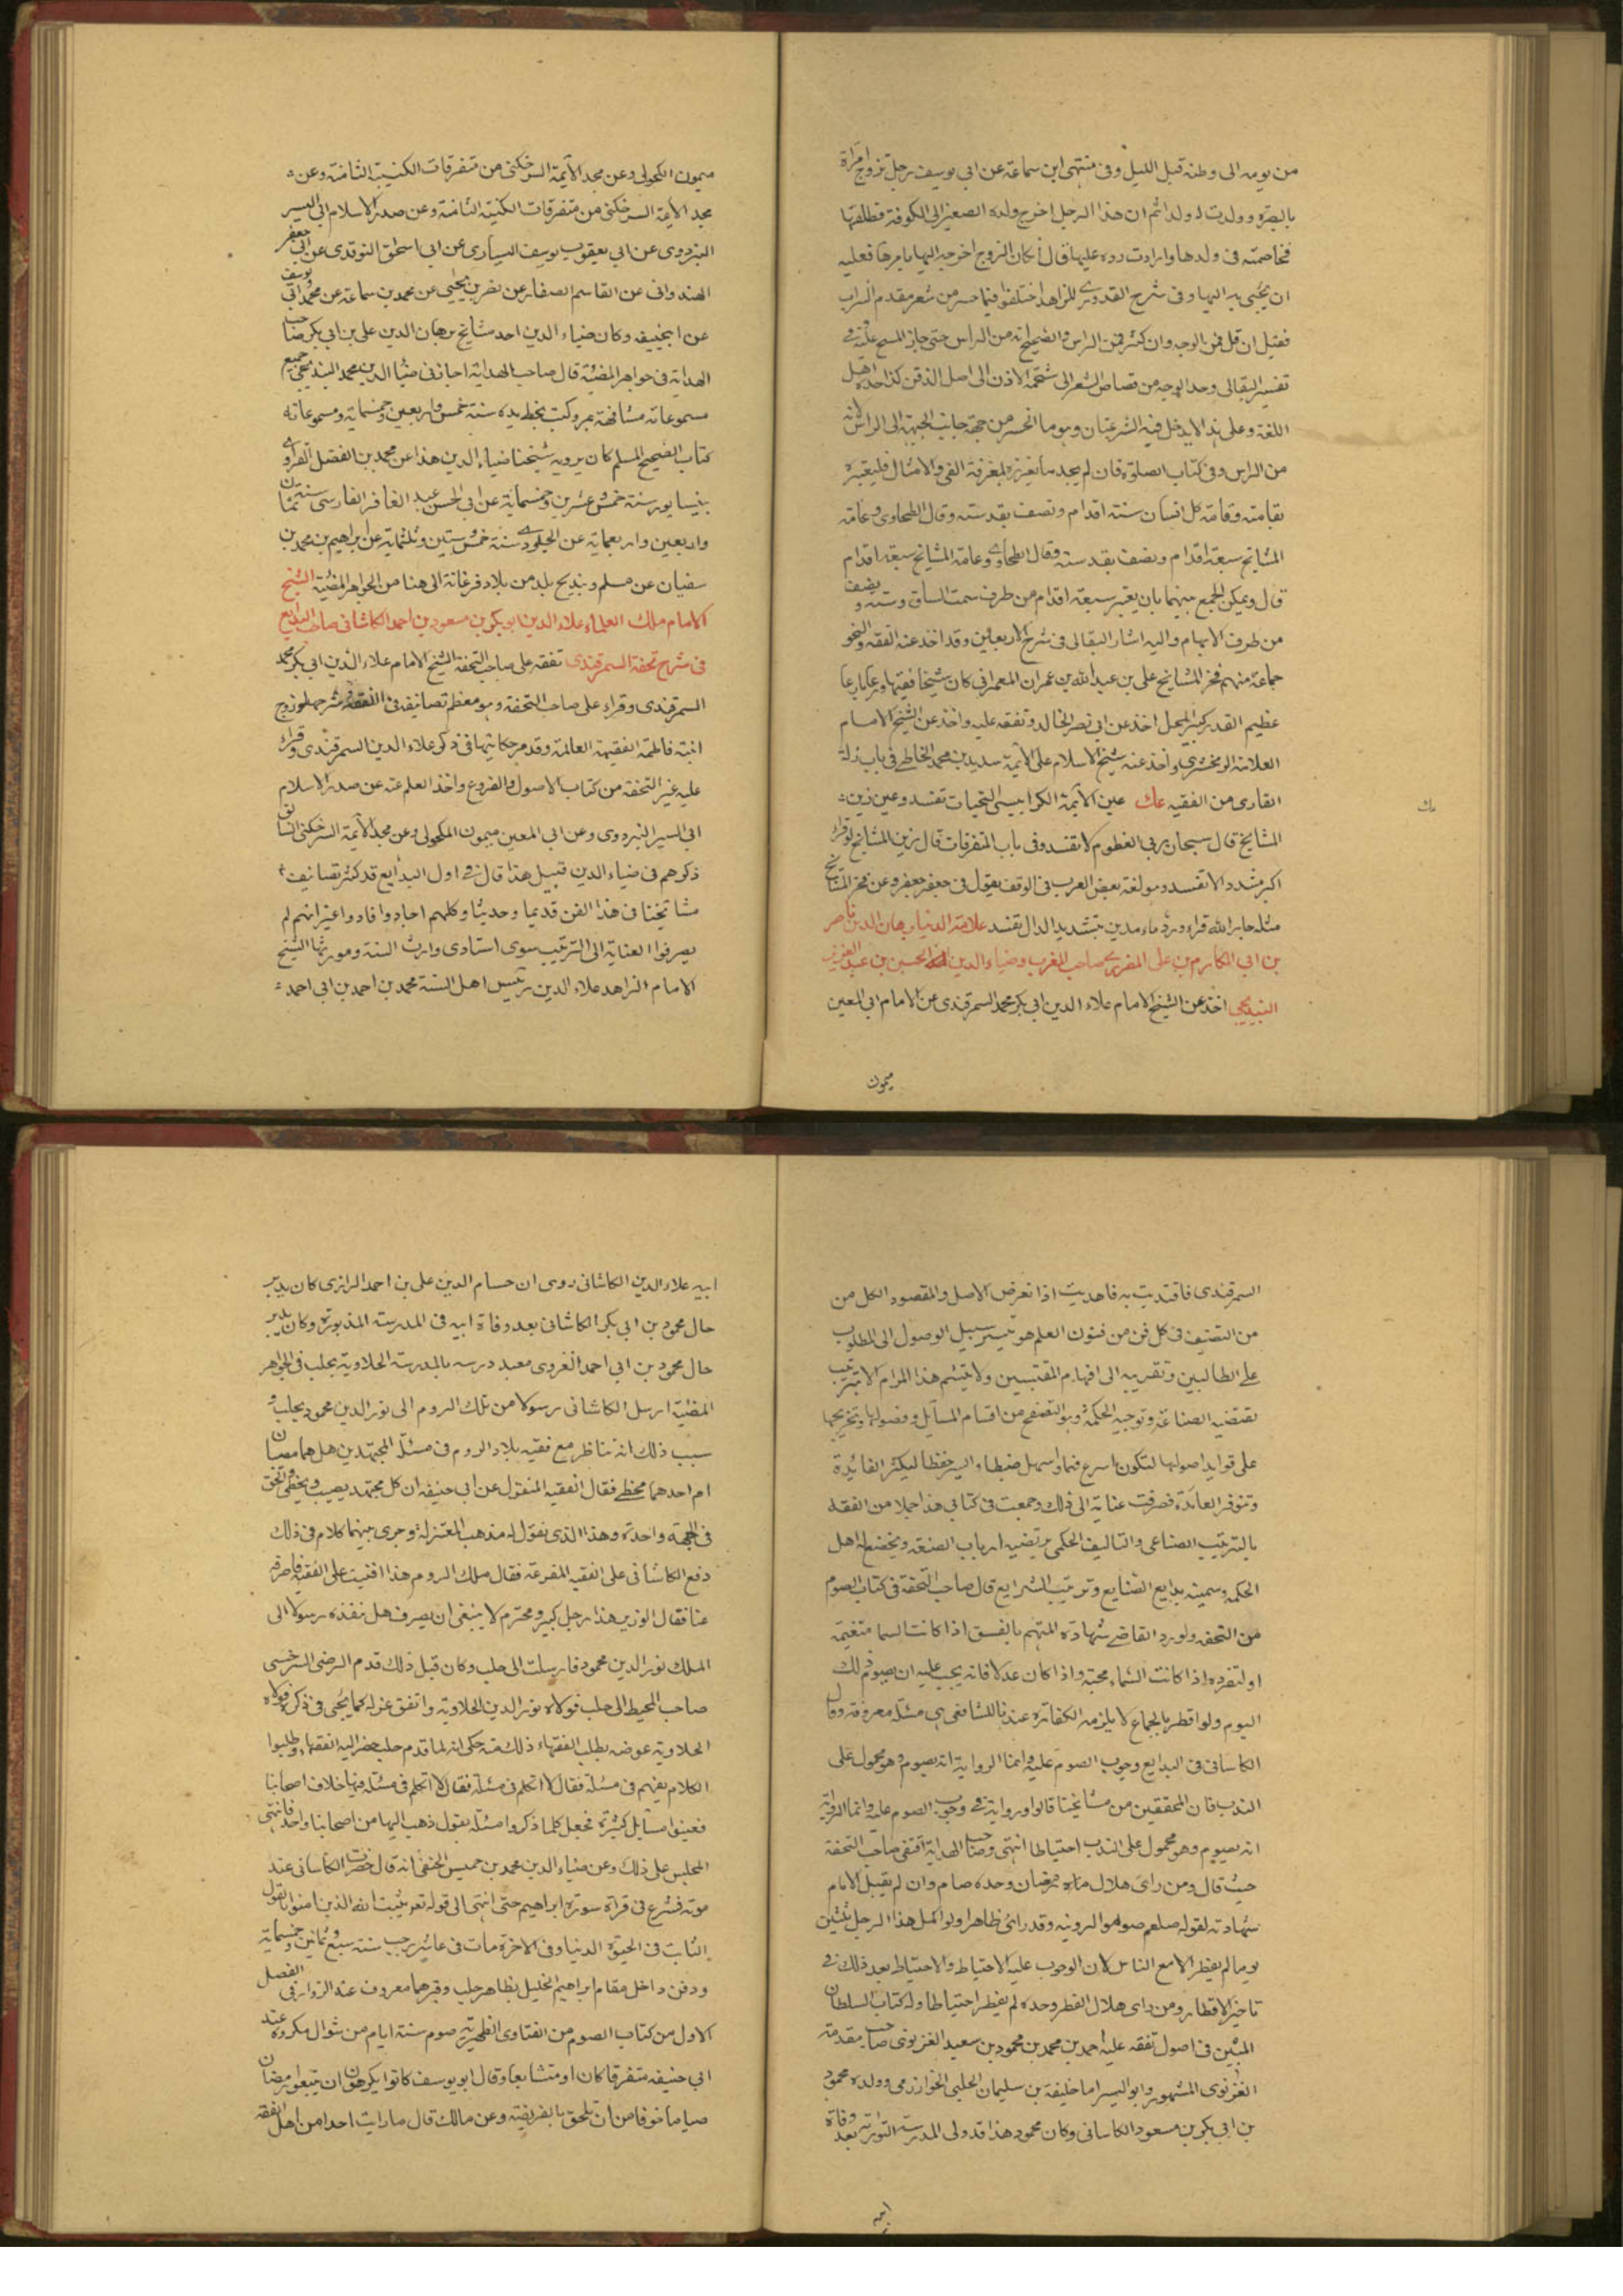 من يومه الى وطنه قبل الليل وفى منتهى ابن سماعة عن ابى يوسف رجل تزوج امرأة
بالبصرة وولدت له ولدا ثم ان هذا الرجل اخرج ولده الصغير الى الكوفة فطلقها
فخاصمته فى ولدها وارادت رده عليها قال ان كان الزوج اخرجه اليها بامرها فعليه
ان يجئ به اليها وفى شرح القدورى للزاهد اختلفوا فيما حسر من شعر مقدم الراس
فقيل ان قل فمن الوجه وان كثر فمن الراس والصحيح انه من الراس حتى جاز المسح عليه وفى
تفسير البقالى وحد الوجه من قصاص الشعر الى شحمة الاذن الى اصل الذقن كذا حده اهل
اللغة وعلى هذا لا يدخل فيه النزعتان وهو ما انحسر من جهة جانب الجبهة الى الراس لانه
من الراس وفى كتاب الصلوة فان لم يجد ما يغرزه لمعرفة الفئ والامثال فليعتبره
بقامته وقامة كل انسان ستة اقدام ونصف بقدمه وقال الطحاوى وعامة
المشايخ سبعة اقدام ونصف بقدمه وقال الطحاوى وعامة المشايخ سبعة اقدام
قال ويمكن الجمع بينهما بان يعتبر سبعة اقدام من طرف سمت الساق وستة ونصف
من طرف الابهام واليه اشار البقالى فى شرح الاربعين وقد اخذ عنه الفقه والنحو
جماعة منهم فخر المشايخ على بن عبد الله بن عمران المعمرانى كان شيخا فقيها وعابارعا
عظيم القدر كبير المحل اخذ عن ابى نصر الخالد وتفقه عليه واخذ عن الشيخ الامام
العلامة الزمخشرى واخذ عنه شيخ الاسلام على الائمة سديد بن محمد الخاطى فى باب زلة
القارى من الفقيه عك عين الائمة الكرابيسى التحيات تفسد وعين زين
المشايخ قال سبحان ربى العظوم لا تفسد وفى باب المتفرقات قال زين المشايخ لو قرأ
اكبر مشدد الا تفسد وهو لغة بعض العرب فى الوقف يقول فى جعفر جعفر وعن فخر المشايخ
مثله جار الله قراء ورد ماء مدين بتشديد الدال تفسد علامة الدنيا برهان الدين ناصر
بن ابى المكارم بن على المطرزى صاحب المغرب وضياء الدين الحسين بن عبد العزيز
البنديجى اخذ عن الشيخ الامام علاء الدين ابى بكر محمد السمرقندى عن الامام ابى المعين
ميمون
ميمون المكحولى وعن مجد الائمة السرخكتى من متفرقات الكتيبة الثامنة وعن
مجد الائمة السرخكتى من متفرقات الكتيبة الثامنة وعن صدر الاسلام ابى اليسر
البزدوى عن ابى يعقوب يوسف السيارى عن ابى اسحق النوقدى عن ابى جعفر
الهندوانى عن القاسم الصفار عن نصر بن يحيى عن محمد بن سماعة عن محمد ابى يوسف
عن ابى حنيفه وكان ضياء الدين احد مشايخ برهان الدين على بن ابى بكر صاحب
الهداية فى جواهر المضئية قال صاحب الهداية اجازنى ضيا الدين محمد البنديجى جميع
مسموعاته مشافهة بمرو وكتب بخط يده سنة خمس واربعين وخمسماية ومسموعاته
كتاب الصحيح لمسلم كان يرويه شيخنا ضياء الدين هذا عن محمد بن الفضل الفراوى
بنيسابور سنة خمس وعشرين وخمسماية عن ابى الحسن عبد الغافر الفارسى سنة ثمان
واربعين واربعماية عن الجلودى سنة خمس وستين وثلثماية عن ابراهيم بن محمد بن
سفيان عن مسلم وبنديج بلد من بلاد فرغانة الى هنا من الجواهر المضئية الشيخ
الامام ملك العلماء علاء الدين ابو بكر بن مسعود بن احمد الكاشانى صاحب البدايع
فى شرح تحفة السمرقندى تفقه على صاحب التحفة الشيخ الامام علاء الدين ابى بكر محمد
السمرقندى وقراء على صاحب التحفة وهو معظم تصانيفه فى الفقه شرحها وزوج
ابنته فاطمة الفقيهة العالمة وقد مر حكايتها فى ذكر علاء الدين السمرقندى وقراء
عليه غير التحفة من كتاب الاصول والفروع واخذ العلم عنه عن صدر الاسلام
ابى اليسر البزدوى وعن ابى المعين ميمون المكحولى وعن مجد الائمة السرخكتى السابق
ذكرهم فى ضياء الدين قبيل هذا قال فى اول البدايع قد كثر تصانيف
مشايخنا فى هذا الفن قديما وحديثا وكلهم اجادوا وافادوا غير انهم لم
يصرفوا العناية الى الترتيب سوى استادى وارث السنة ومورثها الشيخ
الامام الزاهد علاء الدين رئيس اهل السنة محمد بن احمد بن ابى احمد
السمرقندى فاقتديت به فاهديت اذا لغرض الاصل والمقصود الكل من
من التصنيف فى كل فن من فنون العلم هو تيسير سبيل الوصول الى المطلوب
على الطالبين وتقريبه الى افهام المقتبسين ولا يلتئم هذا المرام الا بترتيب
تقتضيه الصناعة وتوجبه الحكمة وهو التصفح من اقسام المسايل وفصولها وتخريجها
على قواعد اصولها لتكون اسرع فهما واسهل ضبطا وايسر حفظا ليكثر الفائدة
وتتوفر العائدة فصرفت عنايتى الى ذلك وجمعت فى كتابى هذا جملا من الفقه
بالترتيب الصناعى والتاليف الحكمى يرتضيه ارباب الصنعة ويخضع له اهل
الحكمة وسميته بدايع الصنايع وترتيب الشرايع قال صاحب التحفة فى كتاب الصوم
من التحفة ولو رد القاضى شهادة المتهم بالفسق اذا كانت السما متغيمة
او لتفرده اذا كانت السماء مصحية واذا كان عدلا فانه يجب عليه ان يصوم ذلك
اليوم ولو افطر بالجماع لا يلزمه الكفارة عندنا للشافعى هى مسئلة معروفة وقال
الكاسانى فى البدايع وجوب الصوم عليه وانما الرواية انه يصوم وهو محمول على
الندب فان المحققين من مشايخنا قالوا ورواية فى وجوب الصوم عليه وانما الرواية
انه يصوم وهو محمول على الندب احتياطا انتهى وصاحب الهداية اقتفى صاحب التحفة
حيث قال ومن راى هلال رمضان وحده صام وان لم يقبل الامام
شهادته لقوله صلعم صوموا لرويته وقد راى ظاهرا ولو اكمل هذا الرجل ثلثين
يوما لم يفطر الا مع الناس لان الوجوب عليه الاحتياط والاحتياط بعد ذلك فى
تاخير الافطار ومن راى هلال الفطر وحده لم يفطر احتياطا وله كتاب السلطان
المبين فى اصول تفقه عليه احمد بن محمد بن محمود بن سعيد الغزنوى صاحب مقدمة
الغزنوى المشهور وابو السيرا ما خليفة بن سليمان الحلبى الخوارزمى وولده محمود
بن ابى بكر بن مسعود الكاسانى وكان محمود هذا قد ولى المدرسة النورية بعد وفاة
ابيه
ابيه علاء الدين الكاشانى روى ان حسام الدين على بن احمد الرازى كان يدبر
حال محمود بن ابى بكر الكاشانى بعد وفاة ابيه فى المدرسة المذبورة وكان يدبر
حال محمود بن ابى احمد الغزوى معيد درسه بالمدرسة الحلاوية بحلب فى الجواهر
المضئية ارسل الكاشانى رسولا من تلك الروم الى نور الدين محمود بحلب و
سبب ذلك انه تناظر مع فقيه بلاد الروم فى مسئلة المجتهدين هل هما مصيبان
ام احدهما مخطئ فقال الفقيه المنقول عن ابى حنيفه ان كل مجتهد يصيب ويخطئ والحق
فى الجهة واحدة وهذا الذى نقول له مذهب المعتزلة وجرى بينهما كلام فى ذلك
دفع الكاشانى على الفقيه المقرعة فقال ملك الروم هذا افتيت على الفقيه فاصرفه
عنا فقال الوزير هذا رجل كبير ومحترم لا ينبغى ان يصرف هل نفذه رسولا الى
الملك نور الدين محمود فارسلت الى حلب وكان قبل ذلك قدم الرضى السرخسى
صاحب المحيط الى حلب فولاه نور الدين الحلاوية واتفق عزله كما يجئ فى ذكره فولاه
الحلاوية عوضه بطلب الفقهاء ذلك منه حكى انه لما قدم حلب حضر اليه الفقهاء وطلبوا
الكلام بينهم فى مسئلة فقال لا اتكلم فى مسئلة فقال لا اتكلم فى مسئلة فيها خلاف اصحابنا
فعينوا مسايل كثيرة فجعل كلما ذكروا مسئلة يقول ذهب اليها من اصحابنا واحد فانتهى
المجلس على ذلك وعن ضياء الدين محمد بن خميس الحنفى انه قال حضرت الكاسانى عند
موته فشرع فى قراة سورة ابراهيم حتى انتهى الى قوله تعو يثبت الله الذين امنوا بالقول
الثابت فى الحيوة الدنيا وفى الاخرة مات فى عاشر رجب سنة سبع وثمانين وخمسماية
ودفن داخل مقام ابراهيم الخليل بظاهر حلب وقبرهما معروف عند الزوار فى الفصل
الاول من كتاب الصوم من الفتاوى الظهيرية صوم ستة ايام من شوال مكروه عند
ابى حنيفه متفرقا كان او متتابعا وقال ابو يوسف كانوا يكرهون ان يتبعوا رمضان
صياما خوفا من ان تلحق بالفريضة وعن مالك قال ما رايت احدا من اهل الفقه